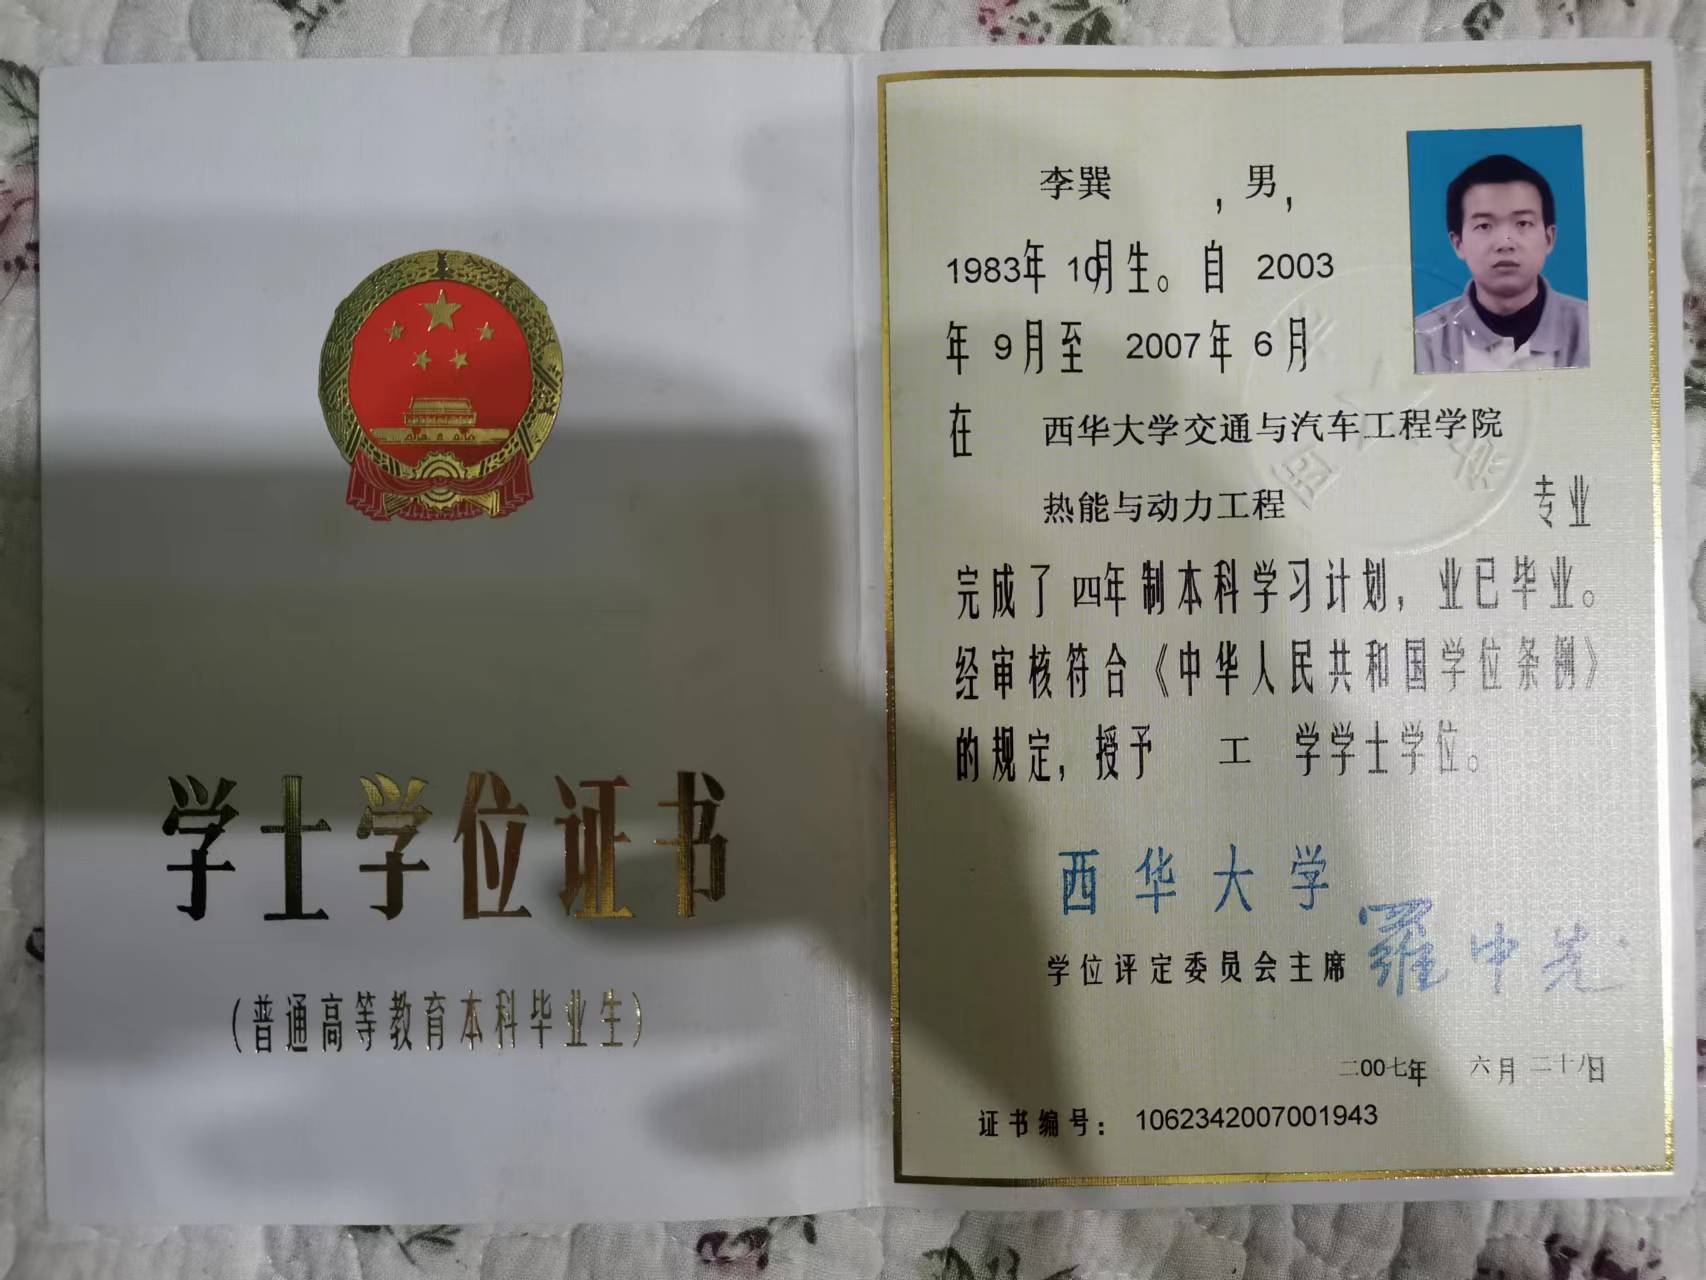 学士学位证书
(普通高等教育本科毕业生)
李巽 ,男,
1983年 10月生。自 2003
年 9月至 2007年 6月
在 西华大学交通与汽车工程学院
热能与动力工程 专业
完成了 四年制本科学习计划，业已毕业。
经审核符合《中华人民共和国学位条例》
的规定，授予 工 学学士学位。
西华大学
学位评定委员会主席 羅中先
二00七年 六月 二十八日
证书编号： 1062342007001943